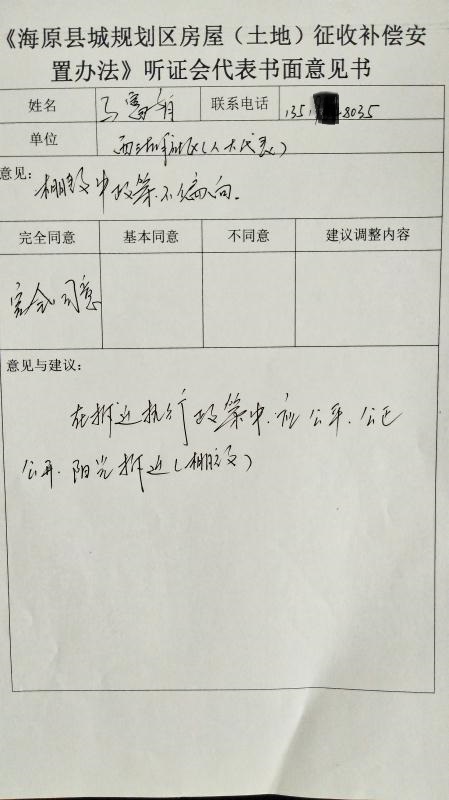 《海原县城规划区房屋（土地）征收补偿安
置办法》听证会代表书面意见书
姓名 马富有 联系电话 135 8035
单位 西 社区(人大代表)
意见：
棚改中政策不偏向。
完全同意 基本同意 不同意 建议调整内容
完全同意
意见与建议：
在拆迁执行政策中.应公平.公正
公开.阳光拆迁(棚改)